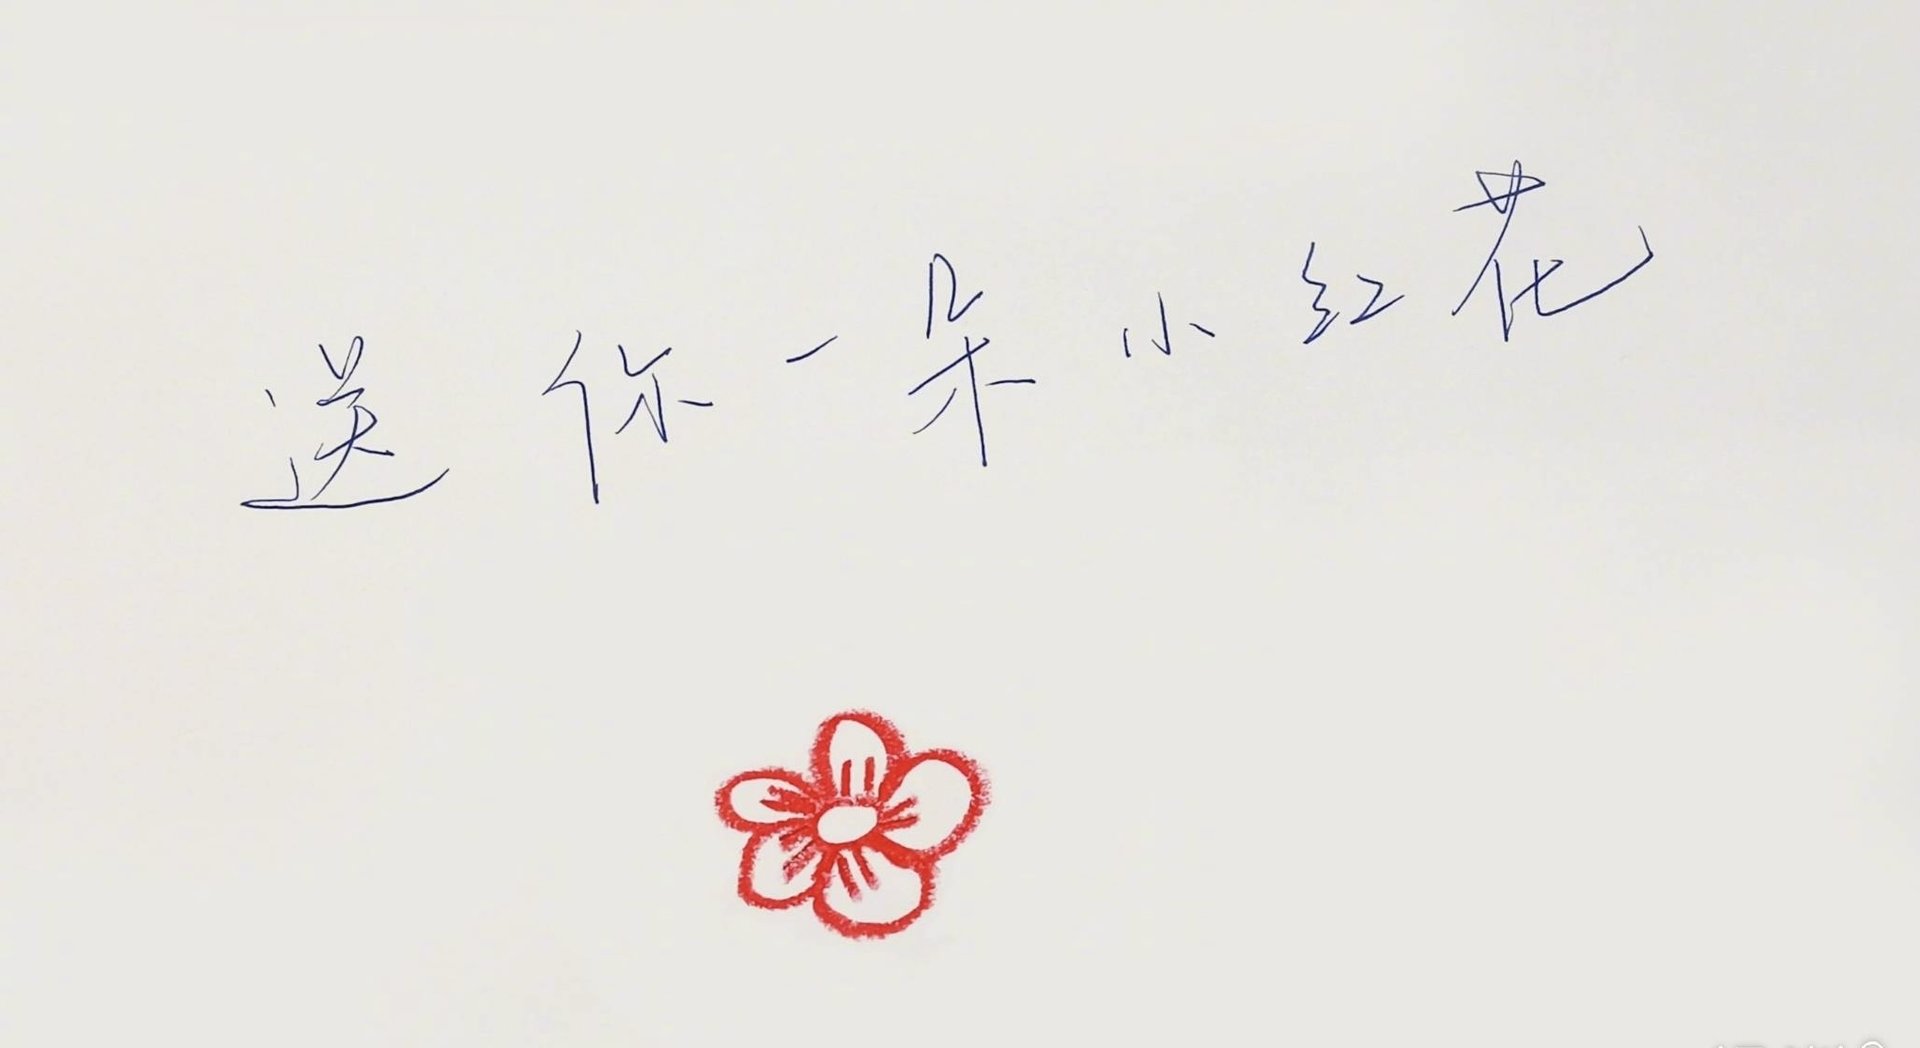 送你一朵小红花